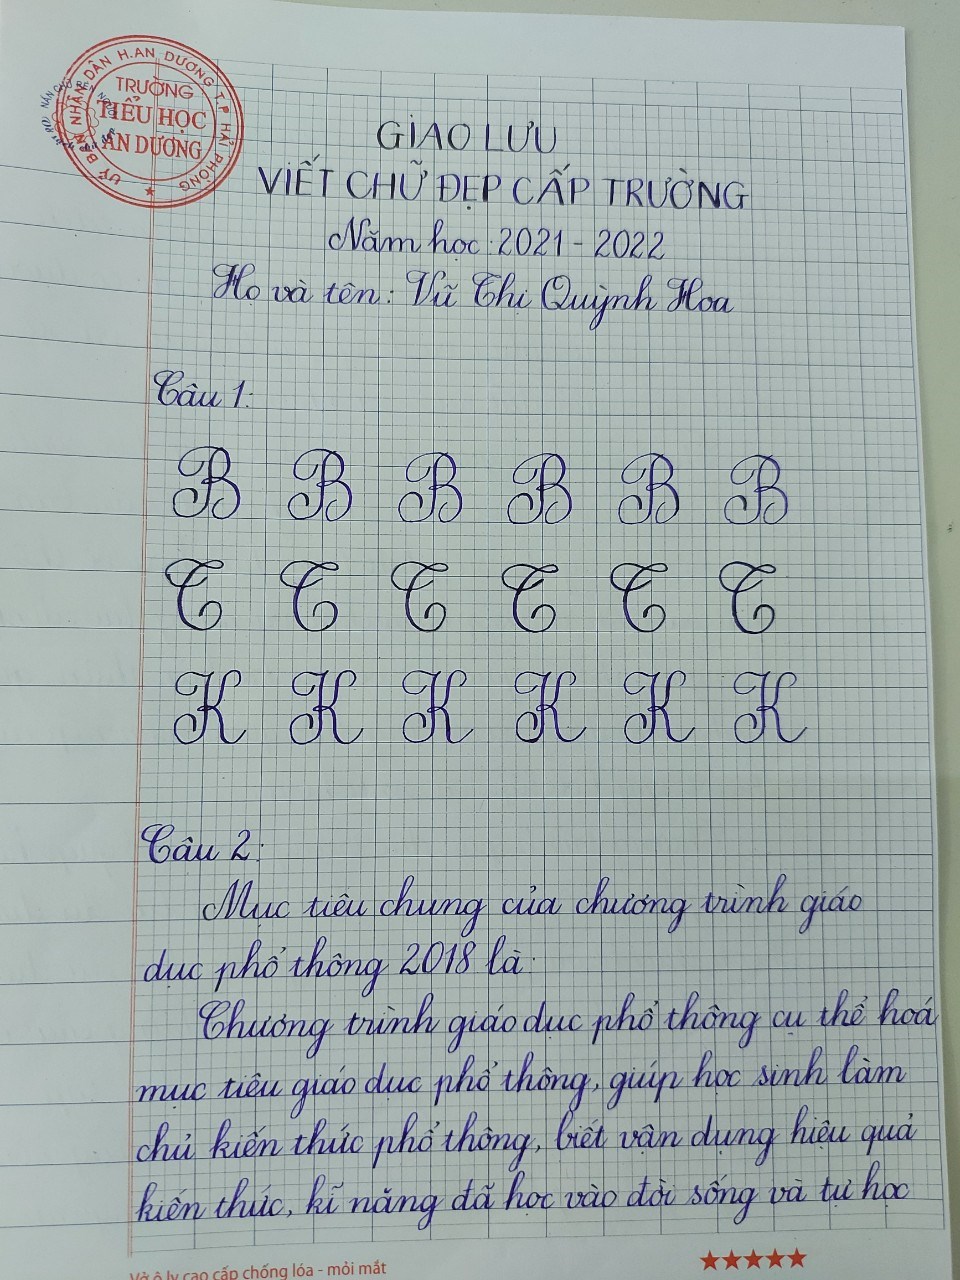 UỶ BAN NHÂN DÂN H.AN DƯƠNG T.P HẢI PHÒNG
TRƯỜNG
TIỂU HỌC
AN DƯƠNG
GIAO LƯU
VIẾT CHỮ ĐẸP CẤP TRƯỜNG
Năm học: 2021 - 2022
Họ và tên: Vũ Thị Quỳnh Hoa
Câu 1:
B B B B B B
T T T T T T
K K K K K K
Câu 2:
Mục tiêu chung của chương trình giáo
dục phổ thông 2018 là:
Chương trình giáo dục phổ thông cụ thể hoá
mục tiêu giáo dục phổ thông, giúp học sinh làm
chủ kiến thức phổ thông, biết vận dụng hiệu quả
kiến thức, kĩ năng đã học vào đời sống và tự học
Vở ô ly cao cấp chống lóa - mỏi mắt